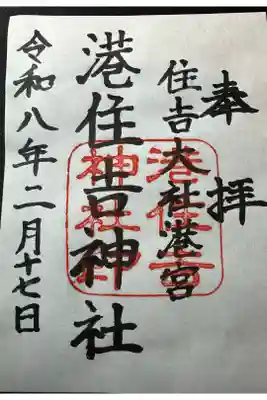 奉拝
住吉大社港宮
港住吉神社
令和八年二月十七日
港住吉
神社印